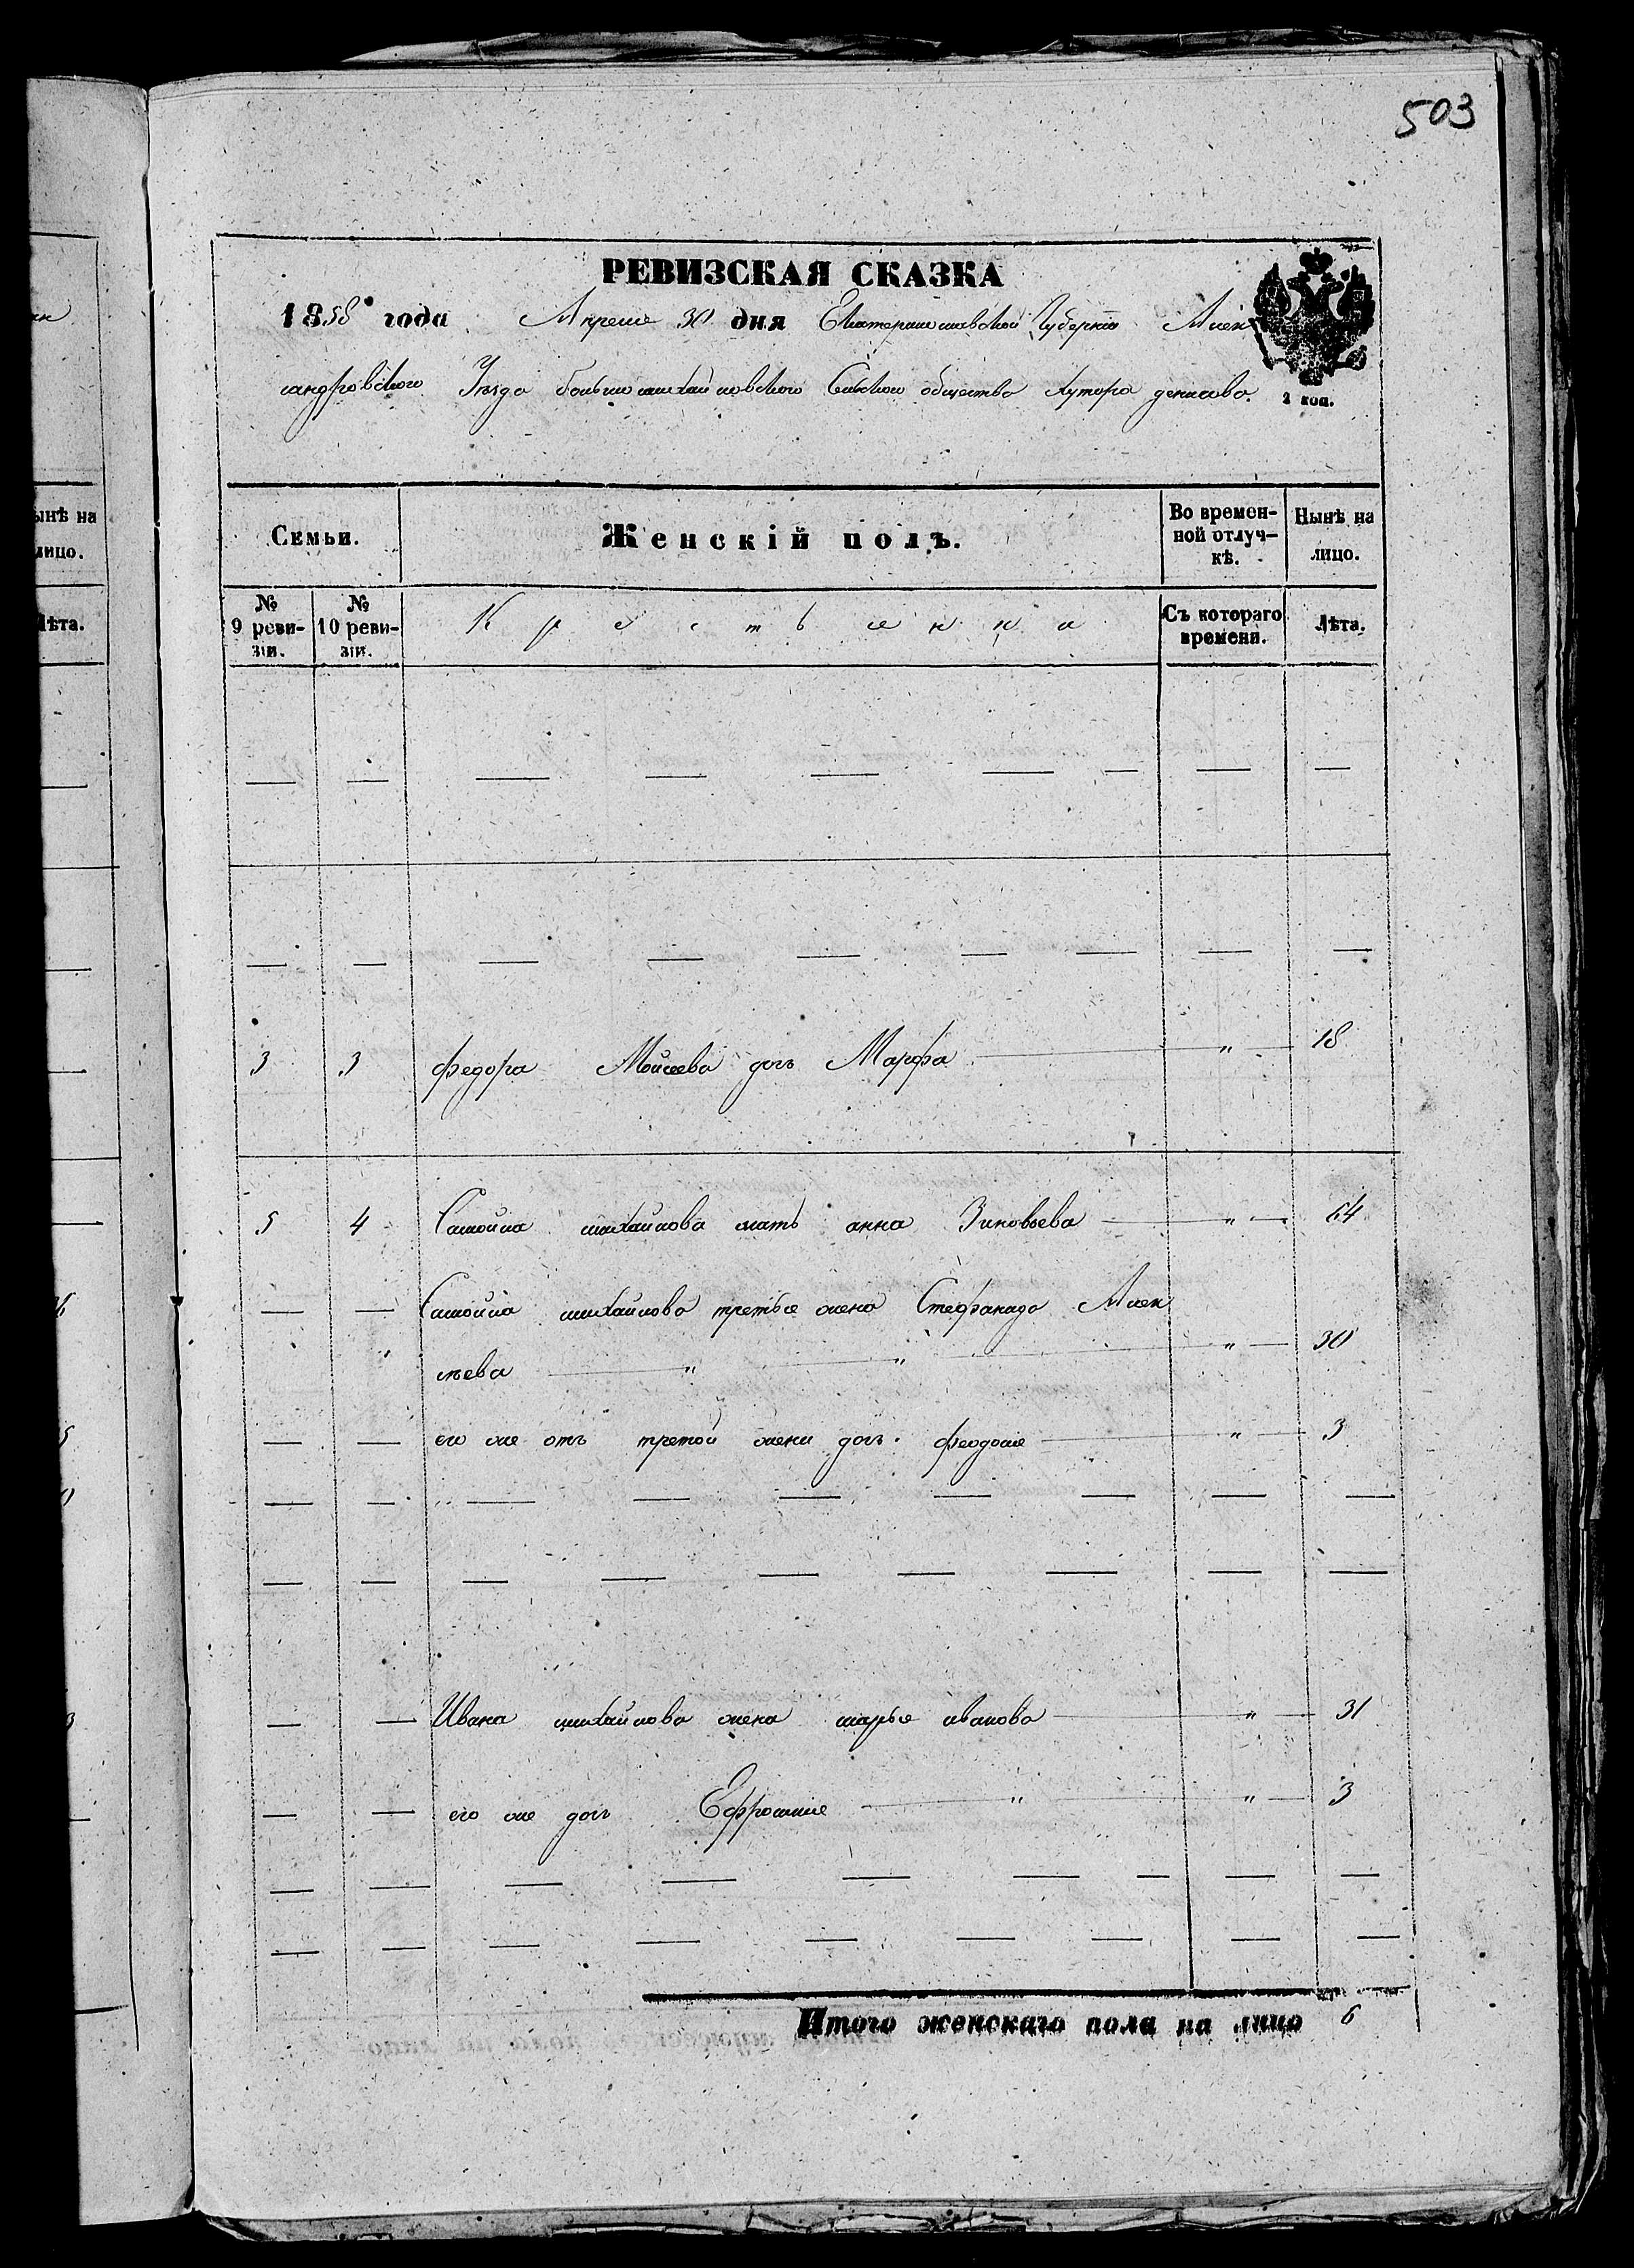 503
РЕВИЗСКАЯ СКАЗКА
1858 года Апреля 30 дня Екатеринославской Губернии Алек
сандровского Уезда большемихайловского Сельского общества Хутора денисова
2 коп.
Семьи. Женскій полъ. Во времен-
ной отлуч-
кѣ. Нынѣ на
лицо.
№
9 реви-
зіи. №
10 реви-
зіи. Крестьянки Съ котораго
времени. Лѣта.
3 3 федора Мойсеева дочь Марфа " 18
5 4 Самойла михайлова мать анна Зиновьева " 64
Самойла михайлова третья жена Стефанида Алек
сѣева " " " 30
его же отъ третой жены дочь феодосия " 3
Ивана михайлова жена марья иванова " 31
его же дочь Ефросиния " " 3
Итого женскаго пола на лицо 6
ынѣ на
лицо.
Лѣта.